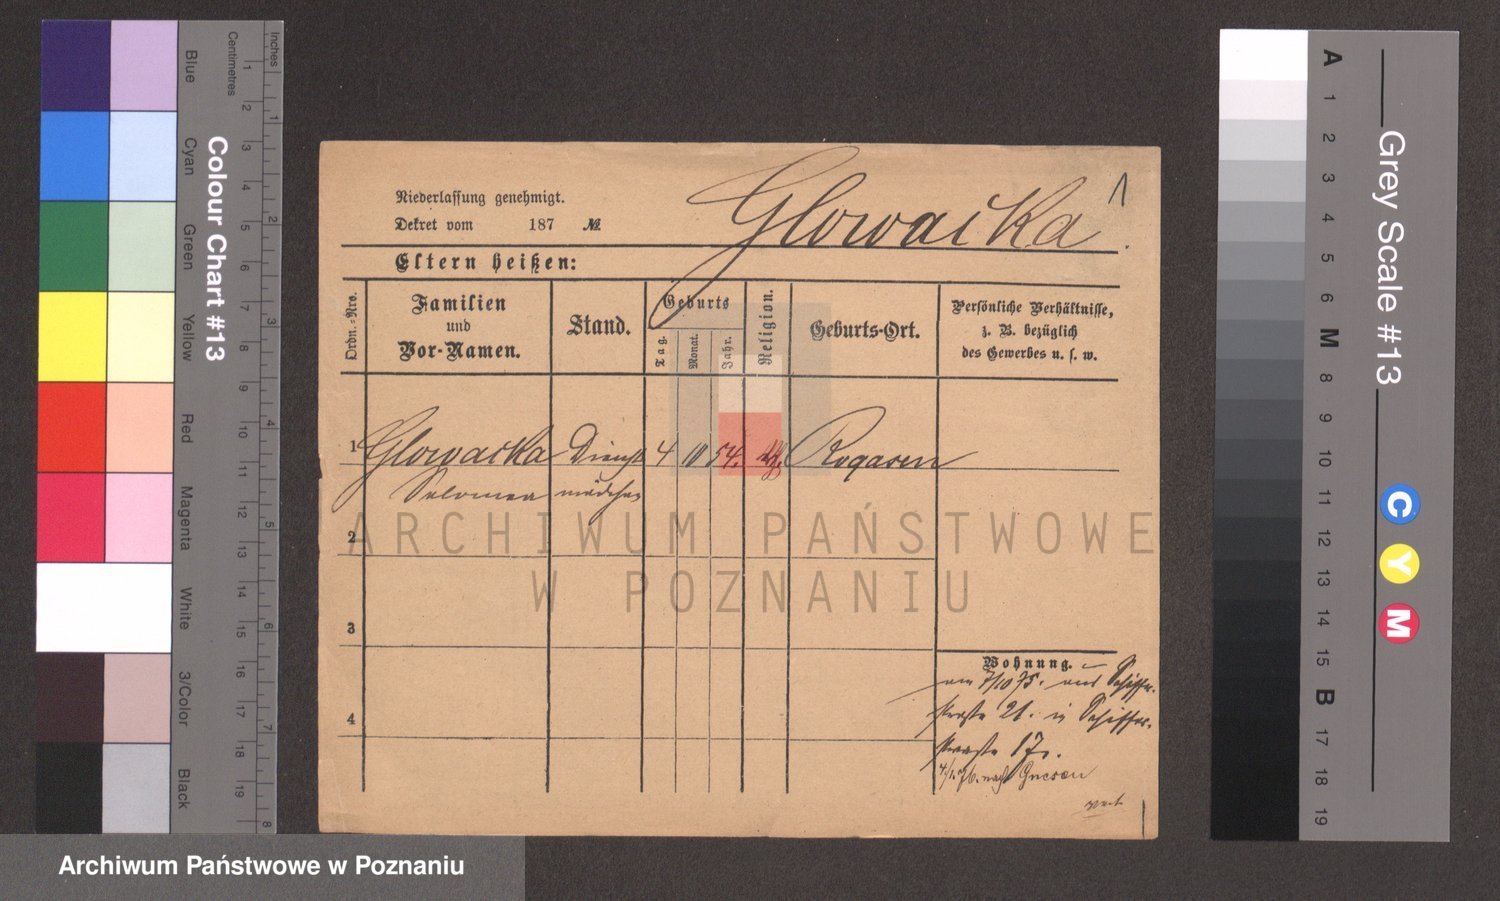 Inches
Centimetres
Colour Chart #13
Blue
Cyan
Green
Yellow
Red
Magenta
White
3/Color
Black
1 2 3 4 5 6 7 8 9 10 11 12 13 15 16 17 18 19
1 2 3 4 5 6 7 8
Niederlassung genehmigt.
Dekret vom 187 №
Glowacka
1
Eltern heißen:
Ordn.-Nro.
Familien
und
Vor-Namen.
Stand.
Geburts
Tag.
Monat.
Jahr.
Religion.
Geburts-Ort.
Persönliche Verhältnisse,
z. B. bezüglich
des Gewerbes u. s. w.
1 Glowacka Dienst 4 11 54. Rogasen
Salomea mädchen
2
3
4
Wohnung.
am 7/10 75. aus Schiffer-
straße 21. in Schiffer-
straße 17.
nach Gnesen
ARCHIWUM PAŃSTWOWE
W POZNANIU
Grey Scale #13
A 1 2 3 4 5 6 M 8 9 10 11 12 13 14 15 B 17 18 19
C
Y
M
Archiwum Państwowe w Poznaniu